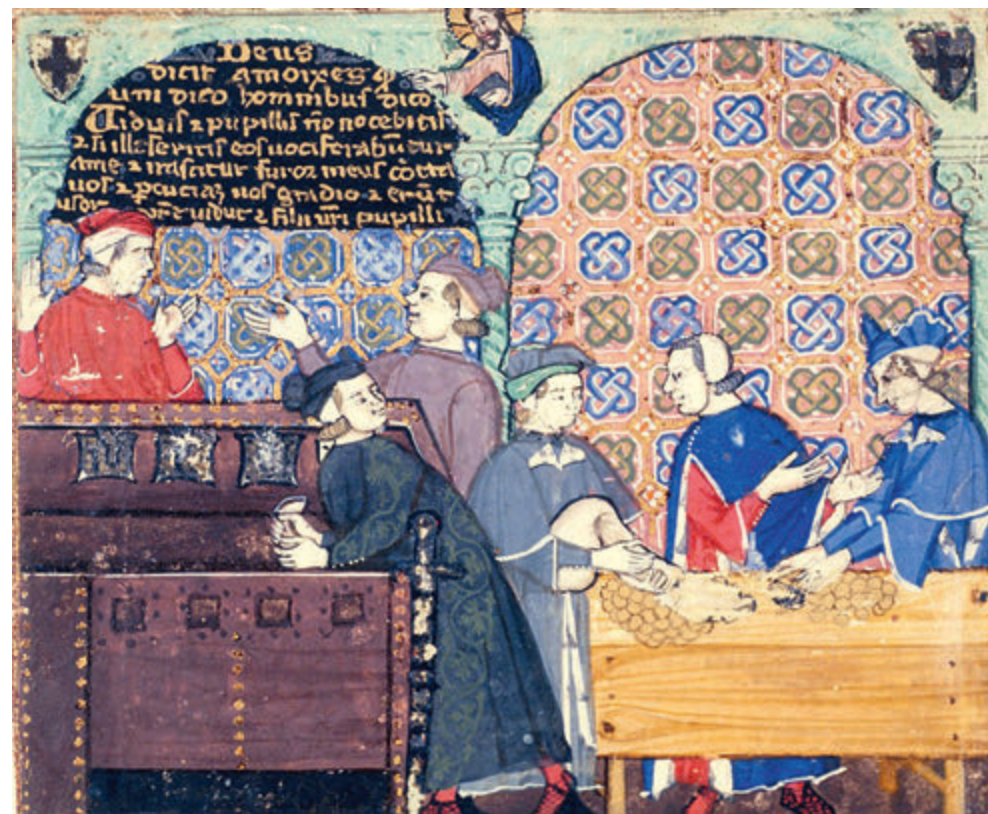 Deus
dicit amoixes q
uni dico hominibus dico
Viduis ⁊ pupillis nō nocebitis
⁊ si illeseritis eos uociferabūtur
ame ⁊ irascatur furor meus cōtra
uos ⁊ pcuciaz uos gladio ⁊ erūt
uidue ⁊ filii ur̄i pupilli